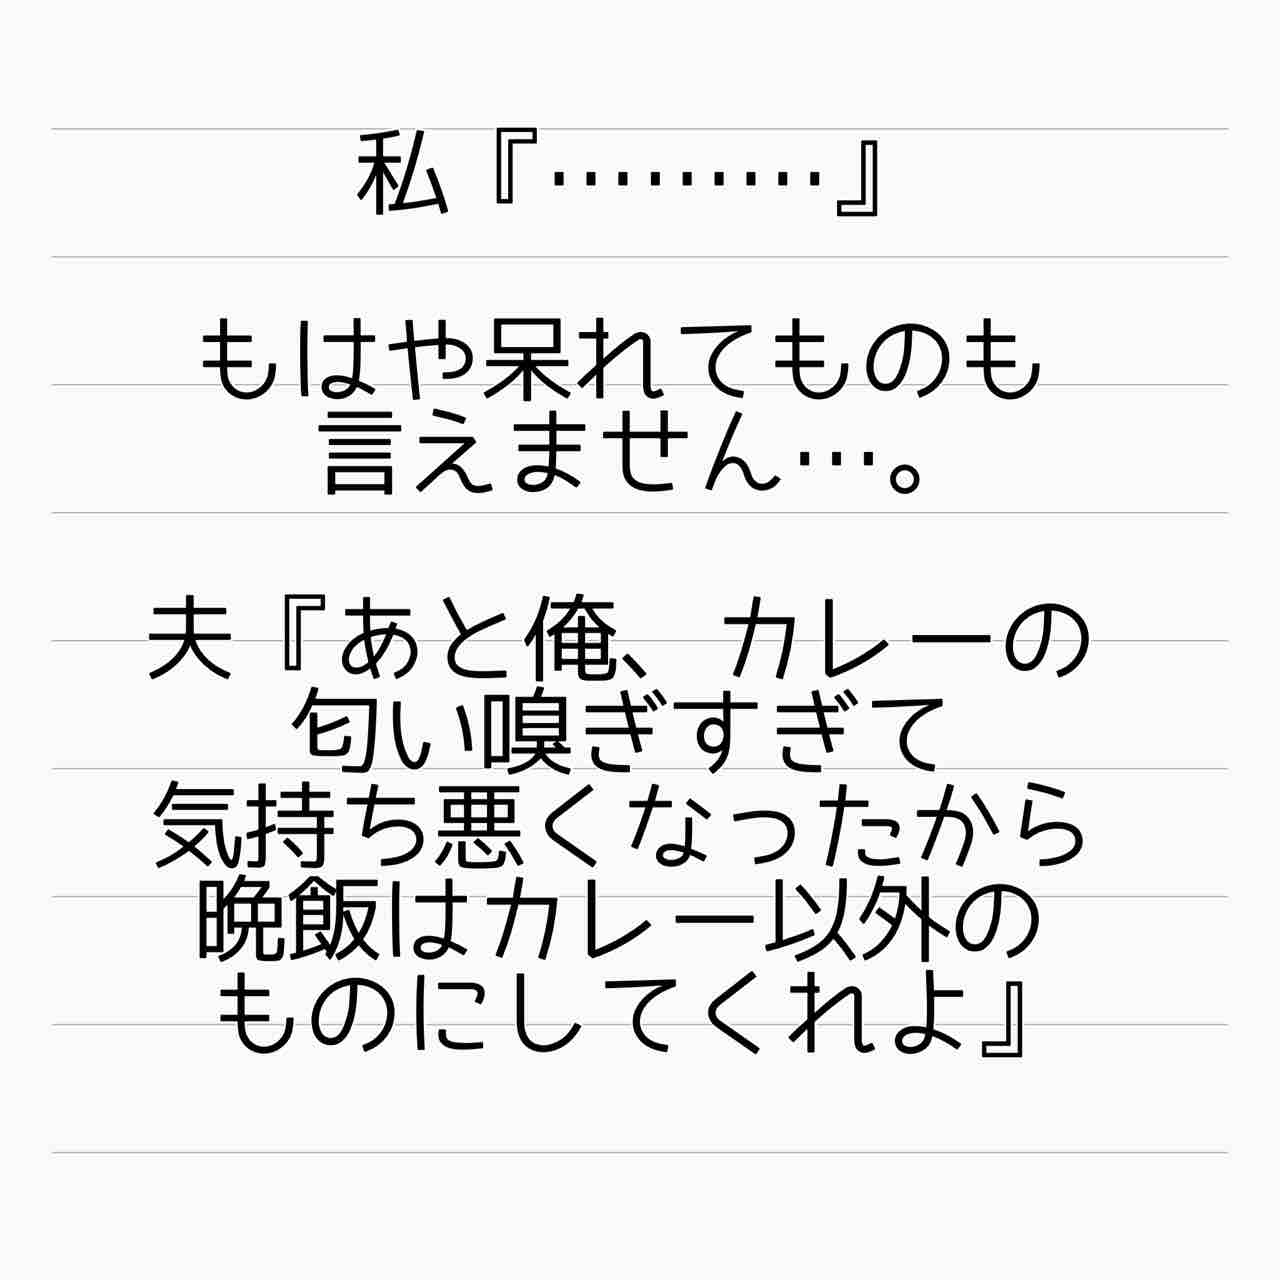 私『………』
もはや呆れてものも
言えません…。
夫『あと俺、カレーの
匂い嗅ぎすぎて
気持ち悪くなったから
晩飯はカレー以外の
ものにしてくれよ』